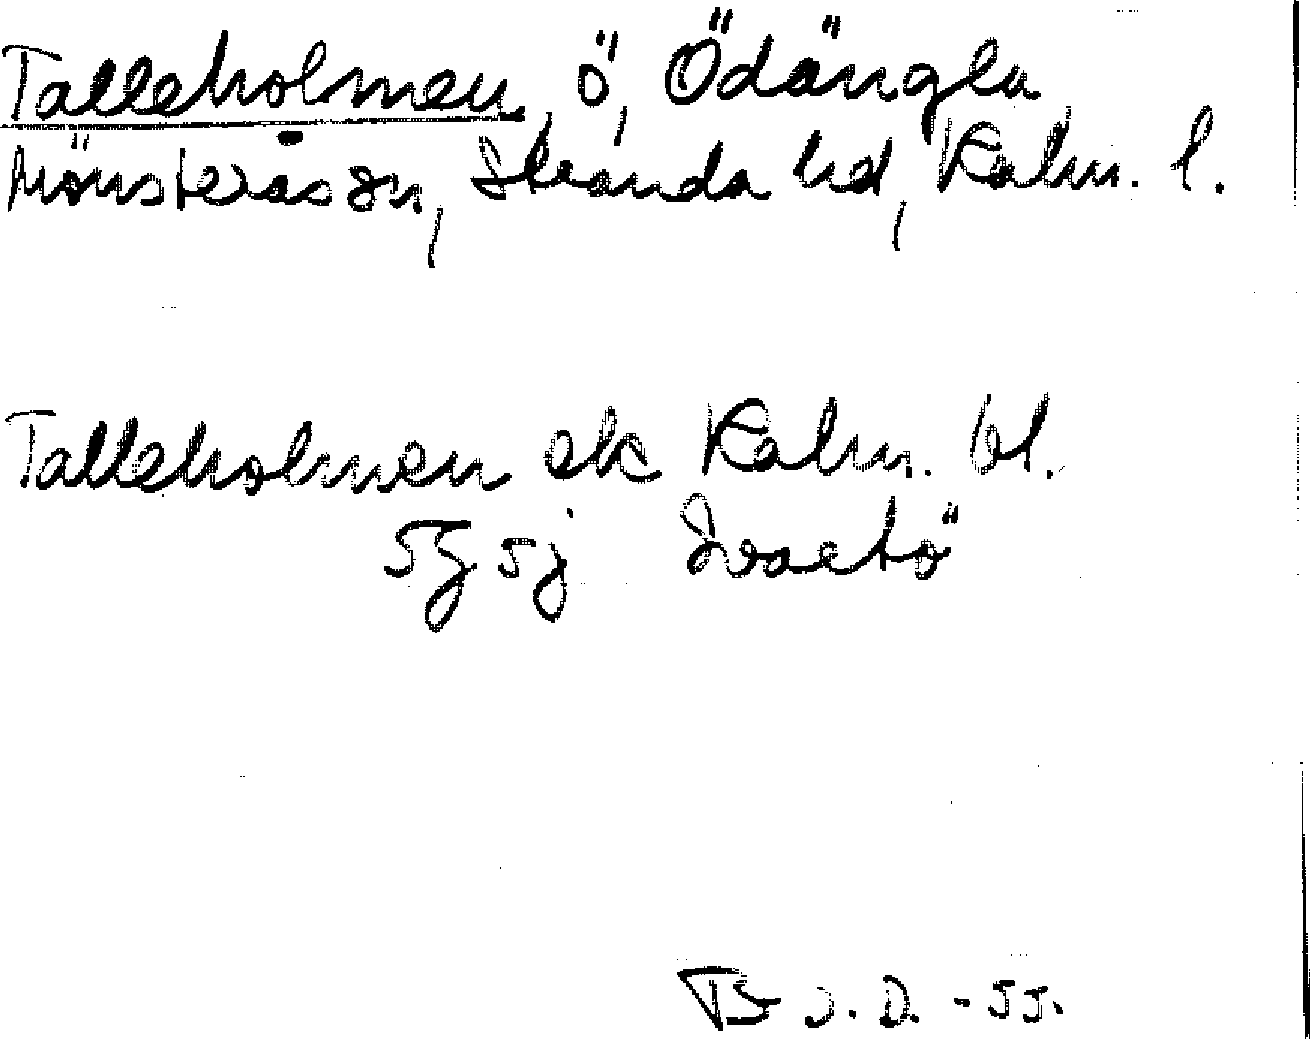 Talleholmen, ö, Ödängla
Mönsterås sn, Stranda hd, Kalm. l.
Talleholmen ek Kalm. bl.
5g 5j Svartö
J. D. -55.